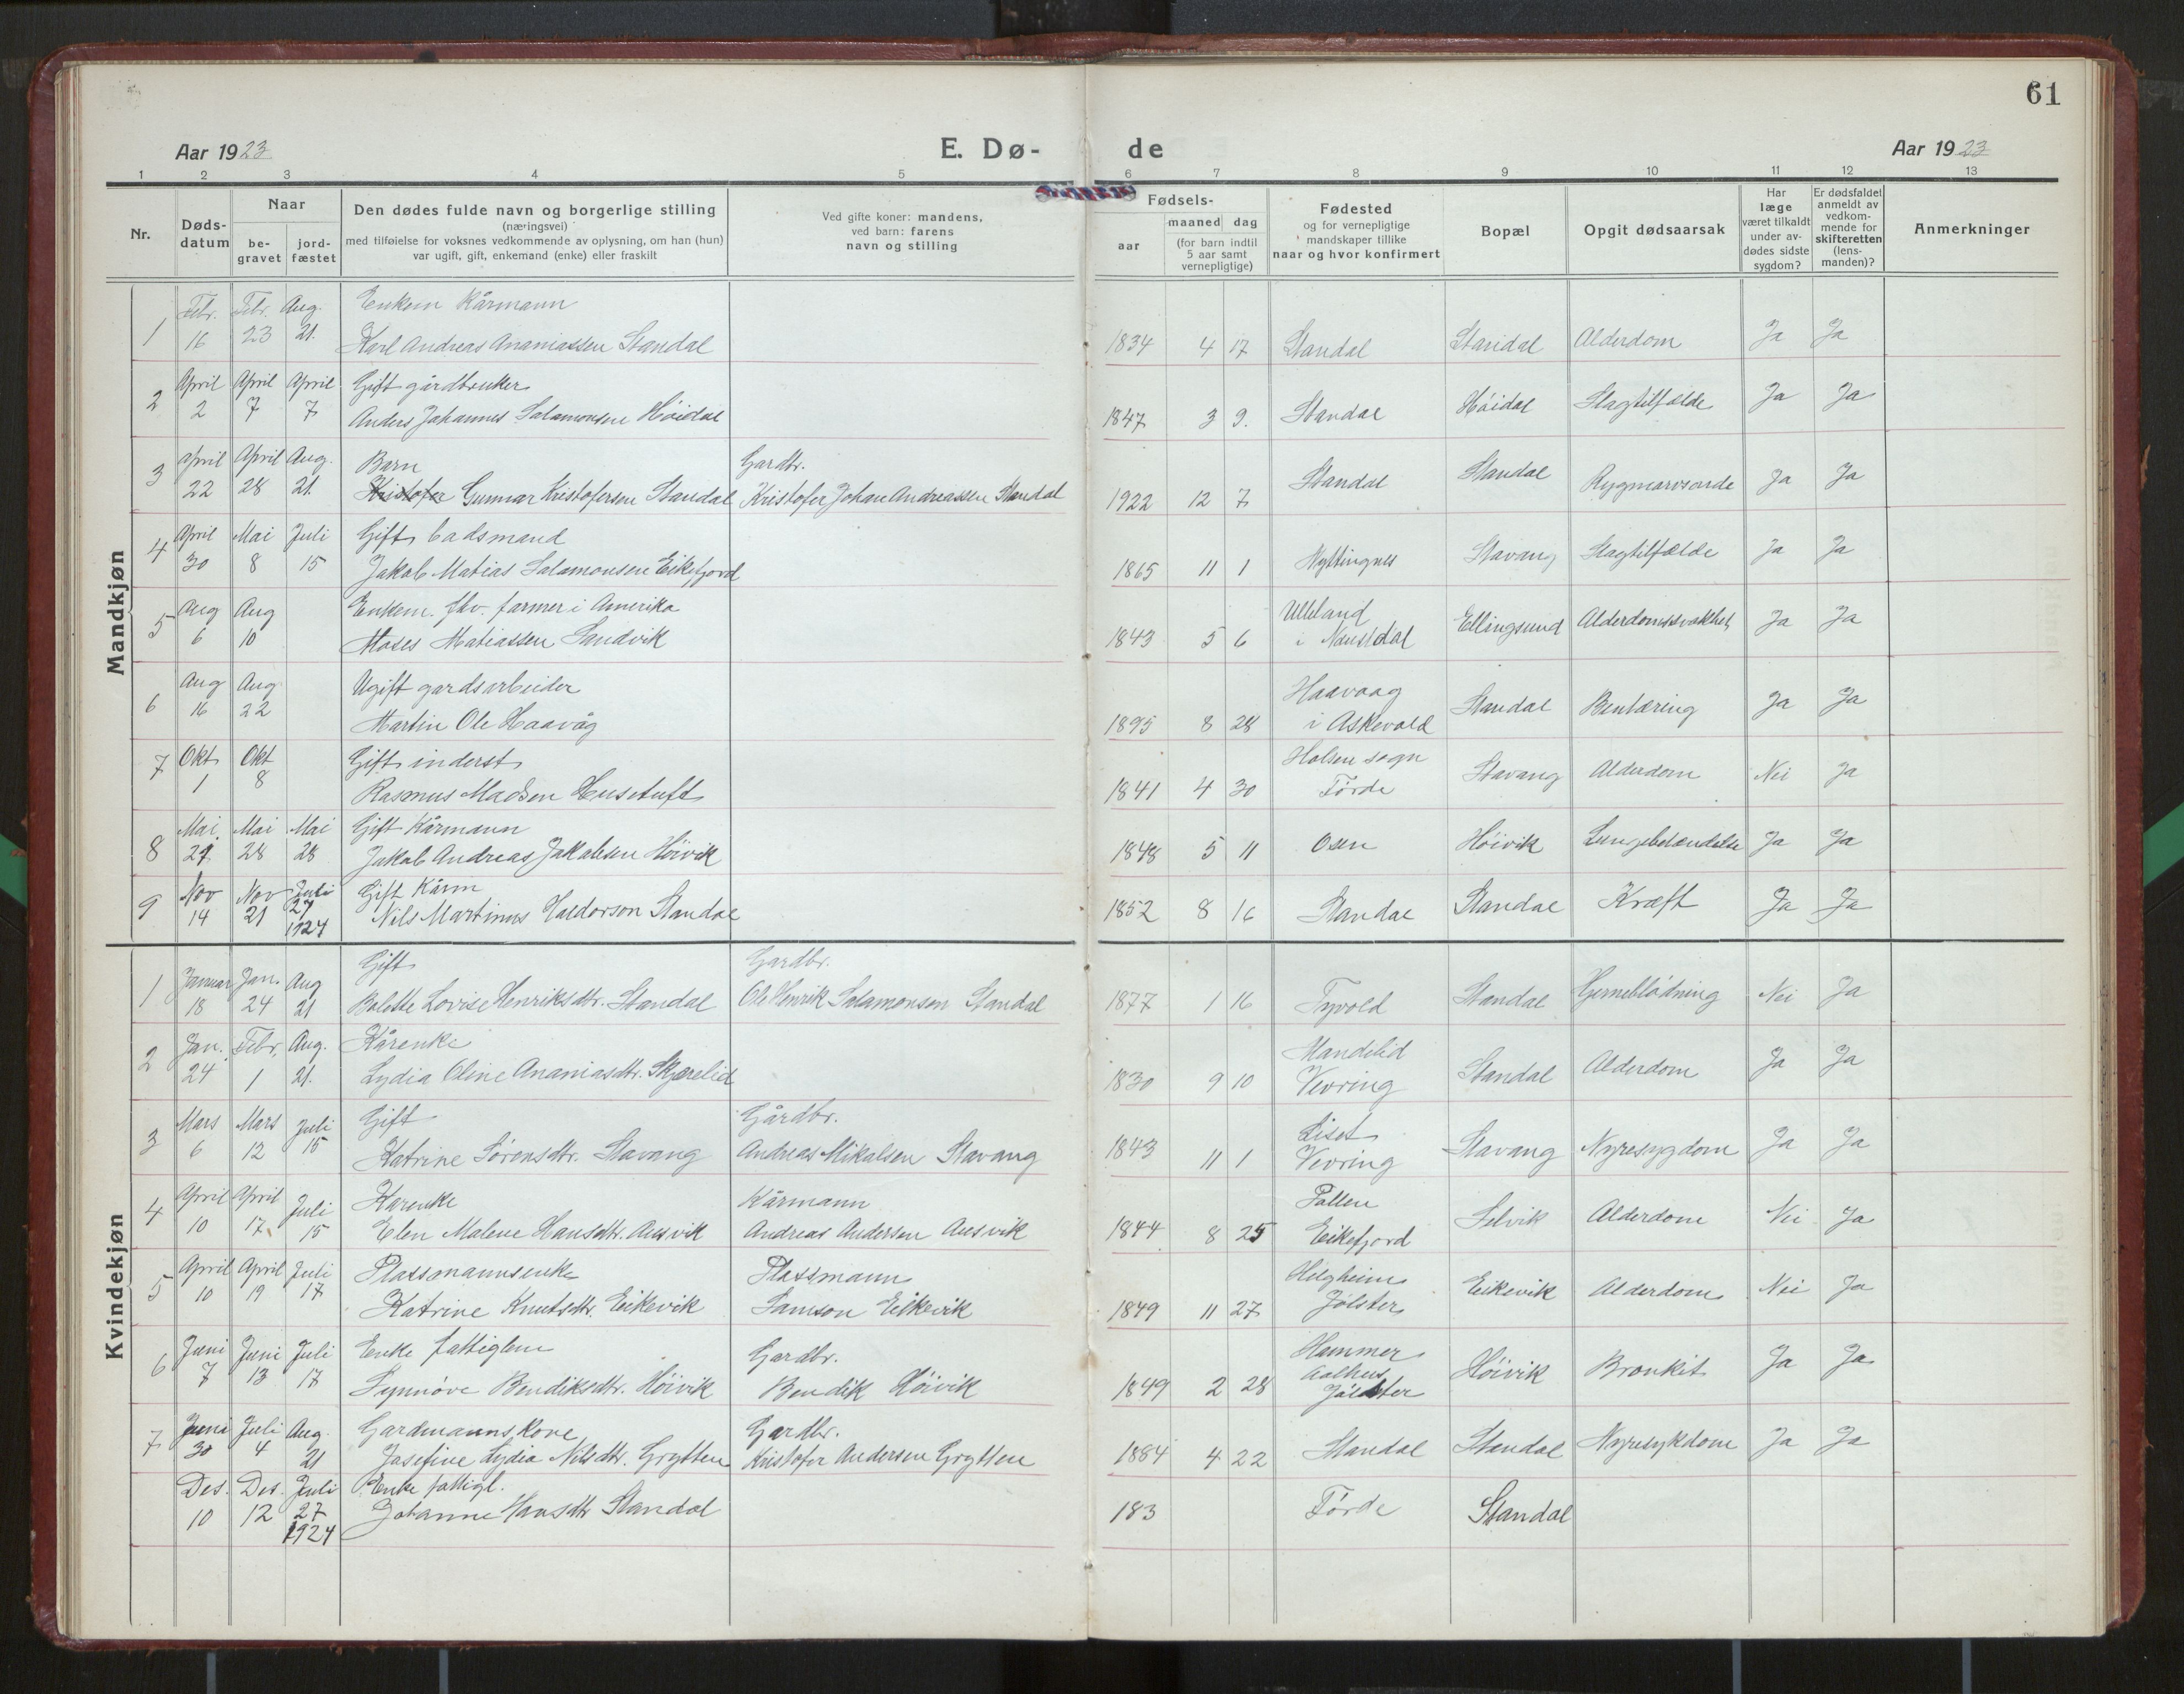 61
Aar 1923
E. Dø-
de
Aar 1923
1 2 3 4 5 6 7 8 9 10 11 12 13
Nr.
Døds-
datum
Naar
be-
gravet
jord-
fæstet
Den dødes fulde navn og borgerlige stilling
(næringsvei)
med tilføielse for voksnes vedkommende av oplysning, om han (hun)
var ugift, gift, enkemand (enke) eller fraskilt
Ved gifte koner: mandens,
ved barn: farens
navn og stilling
Fødsels-
aar
maaned dag
(for barn indtil
5 aar samt
vernepligtige)
Fødested
og for vernepligtige
mandskaper tillike
naar og hvor konfirmert
Bopæl
Opgit dødsaarsak
Har
læge
været tilkaldt
under av-
dødes sidste
sygdom?
Er dødsfaldet
anmeldt av
vedkom-
mende for
skifteretten
(lens-
manden)?
Anmerkninger
Mandkjøn
Febr. Febr. Aug. Enkem Kårmann
1 16 23 21. Karl Andreas Ananiassen Standal 1834 4 17 Standal Standal Alderdom Ja Ja
April April April Gift gårdbruker
2 2 7 7 Anders Johannes Salamonsen Höidal 1847 3 9. Standal Höidal Slagtilfælde Ja Ja
April April Aug. Barn Gardbr.
3 22 28 21. Kristofer Gunnar Kristofersen Standal Kristofer Johan Andreassen Standal 1922 12 7 Standal Standal Rygmarvsorde Ja Ja
April Mai Juli Gift badsmand
4 30 8 15 Jakob Matias Salamonsen Eikefjord 1865 11 1 Nyttingnes Stavang Slagtilfælde Ja Ja
Aug Aug Enkem. fhv. farmer i Amerika Ulleland
5 6 10 Moses Matiassen Sandvik 1843 5 6 i Naustdal Ellingsund Alderdomssvakhet Ja Ja
Aug Aug Ugift gardsarbeider Haavaag
6 16 22 Martin Ole Haavåg 1895 8 28 i Askevold Standal Bentæring Ja Ja
Okt Okt Gift inderst Holsen sogn
7 1 8 Rasmus Madsen Husetuft 1841 4 30 Førde Stavang Alderdom Nei Ja
Mai Mai Mai Gift Kårmann
8 21 28 28 Jakob Andreas Jakobsen Höivik 1848 5 11 Osen Höivik Lungebetændelse Ja Ja
Nov Nov Juli Gift Kårm
9 14 21 27 1924 Nils Martinus Haldorson Standal 1852 8 16 Standal Standal Kræft Ja Ja
Kvindekjøn
Januar Jan. Aug Gift Gardbr.
1 18 24 21 Bolette Lovise Henriksdtr. Standal Ole Henrik Salamonsen Standal 1877 1 16 Tyvold Standal Hjerneblödning Nei Ja
Jan. Febr. Aug. Kårenke Mandelid
2 24 1 21. Lydia Oline Ananiasdtr. Skjærelid 1830 9 10 Vevring Standal Alderdom Ja Ja
Mars Mars Juli Gift Gårdbr. Liset
3 6 12 15 Katrine Sørensdtr. Stavang Andreas Mikalsen Stavang 1843 11 1 Vevring Stavang Nyresygdom Ja Ja
April April Juli Karenke Kårmann Pollen
4 10 17 15 Elen Malene Hansdtr. Ausvik Andreas Andersen Ausvik 1844 8 25 Eikefjord Selvik Alderdom Nei Ja
April April Juli Plassmannsenke Plassmann Helgheim
5 10 19 17 Katrine Knutsdtr. Eikevik Samson Eikevik 1849 11 27 Jølster Eikevik Alderdom Nei Ja
Juni Juni Juli Enke fattiglem Gardbr. Hammer
Aalhus
6 7 13 17 Synnöve Bendiksdtr. Höivik Bendik Höivik 1849 2 28 Jölster Höivik Bronkit Ja Ja
Juni Juli Aug. Gardmannskone Gardbr.
7 30 4 21 Josefine Lydia Nilsdtr. Grytten Kristofer Andersen Grytten 1884 4 22 Standal Standal Nyresykdom Ja Ja
Des. Des. Juli Enke fattigl.
10 12 27 1924 Johanne Hansdtr Standal 183 Førde Standal